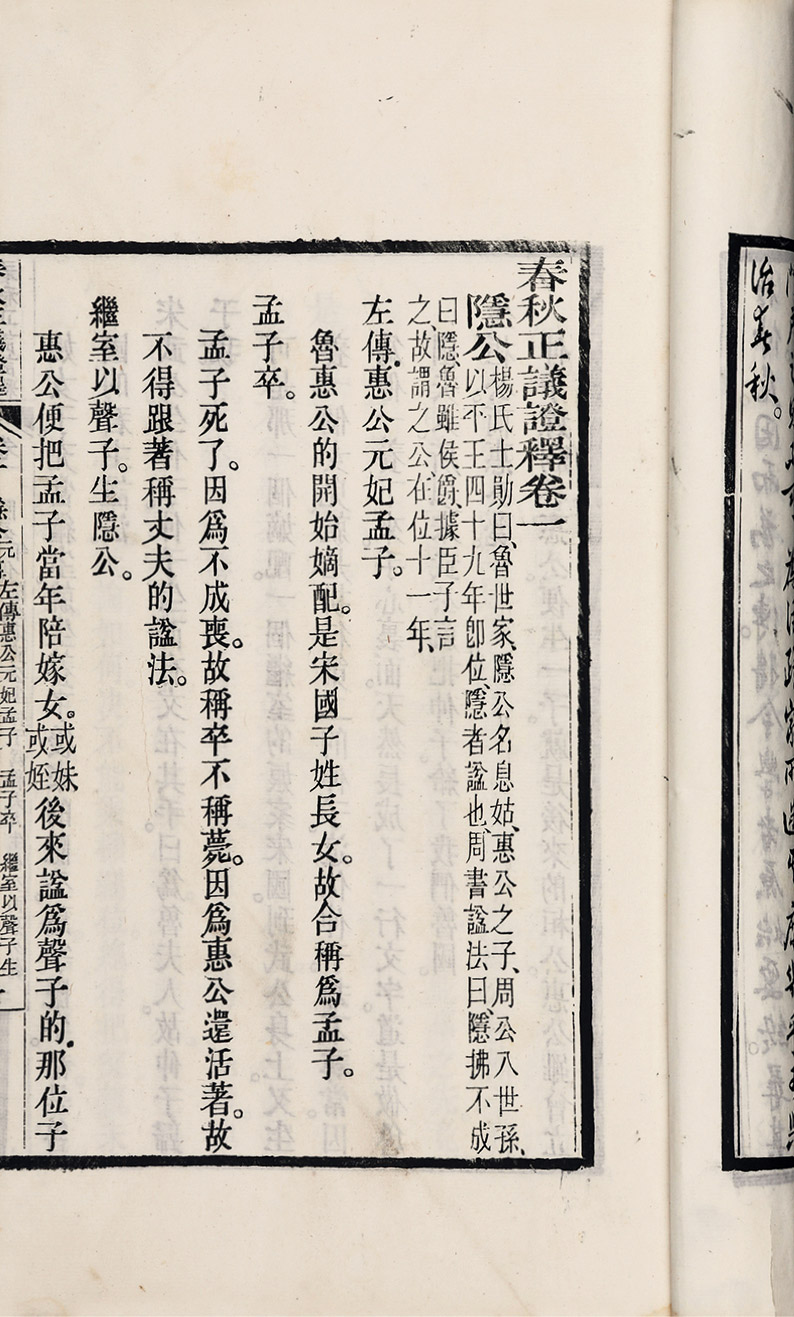 治春秋。
春秋正議證釋卷一
隱公楊氏士勛曰、魯世家、隱公名息姑、惠公之子、周公八世孫、
以平王四十九年卽位、隱者諡也、周書諡法曰、隱拂不成
曰隱、魯雖侯爵、據臣子言
之、故謂之公、在位十一年、
左傳。惠公元妃孟子。
魯惠公的開始嫡配。是宋國子姓長女。故合稱爲孟子。
孟子卒。
孟子死了。因爲不成喪。故稱卒不稱薨。因爲惠公還活著。故
不得跟著稱丈夫的諡法。
繼室以聲子。生隱公。
惠公便把孟子當年陪嫁女。或妹或姪後來諡爲聲子的。那位子
左傳惠公元妃孟子 孟子卒 繼室以聲子生